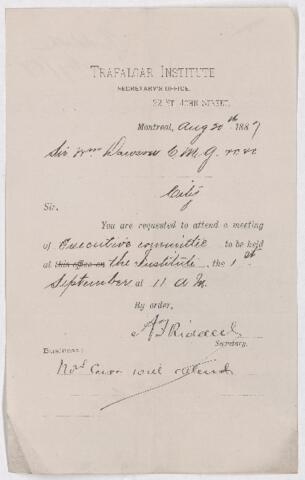 TRAFALGAR INSTITUTE
SECRETARY'S OFFICE,
22 ST JOHN STREET,
Montreal, Aug 20th 1887
Sir Wm Dawson C.M.G. &c &c
City
Sir.
You are requested to attend a meeting
of Executive Committee to be held
at this office on the Institute the 1st
September at 11 A M.
By order,
A F Riddell
Secretary.
Business:
will attend